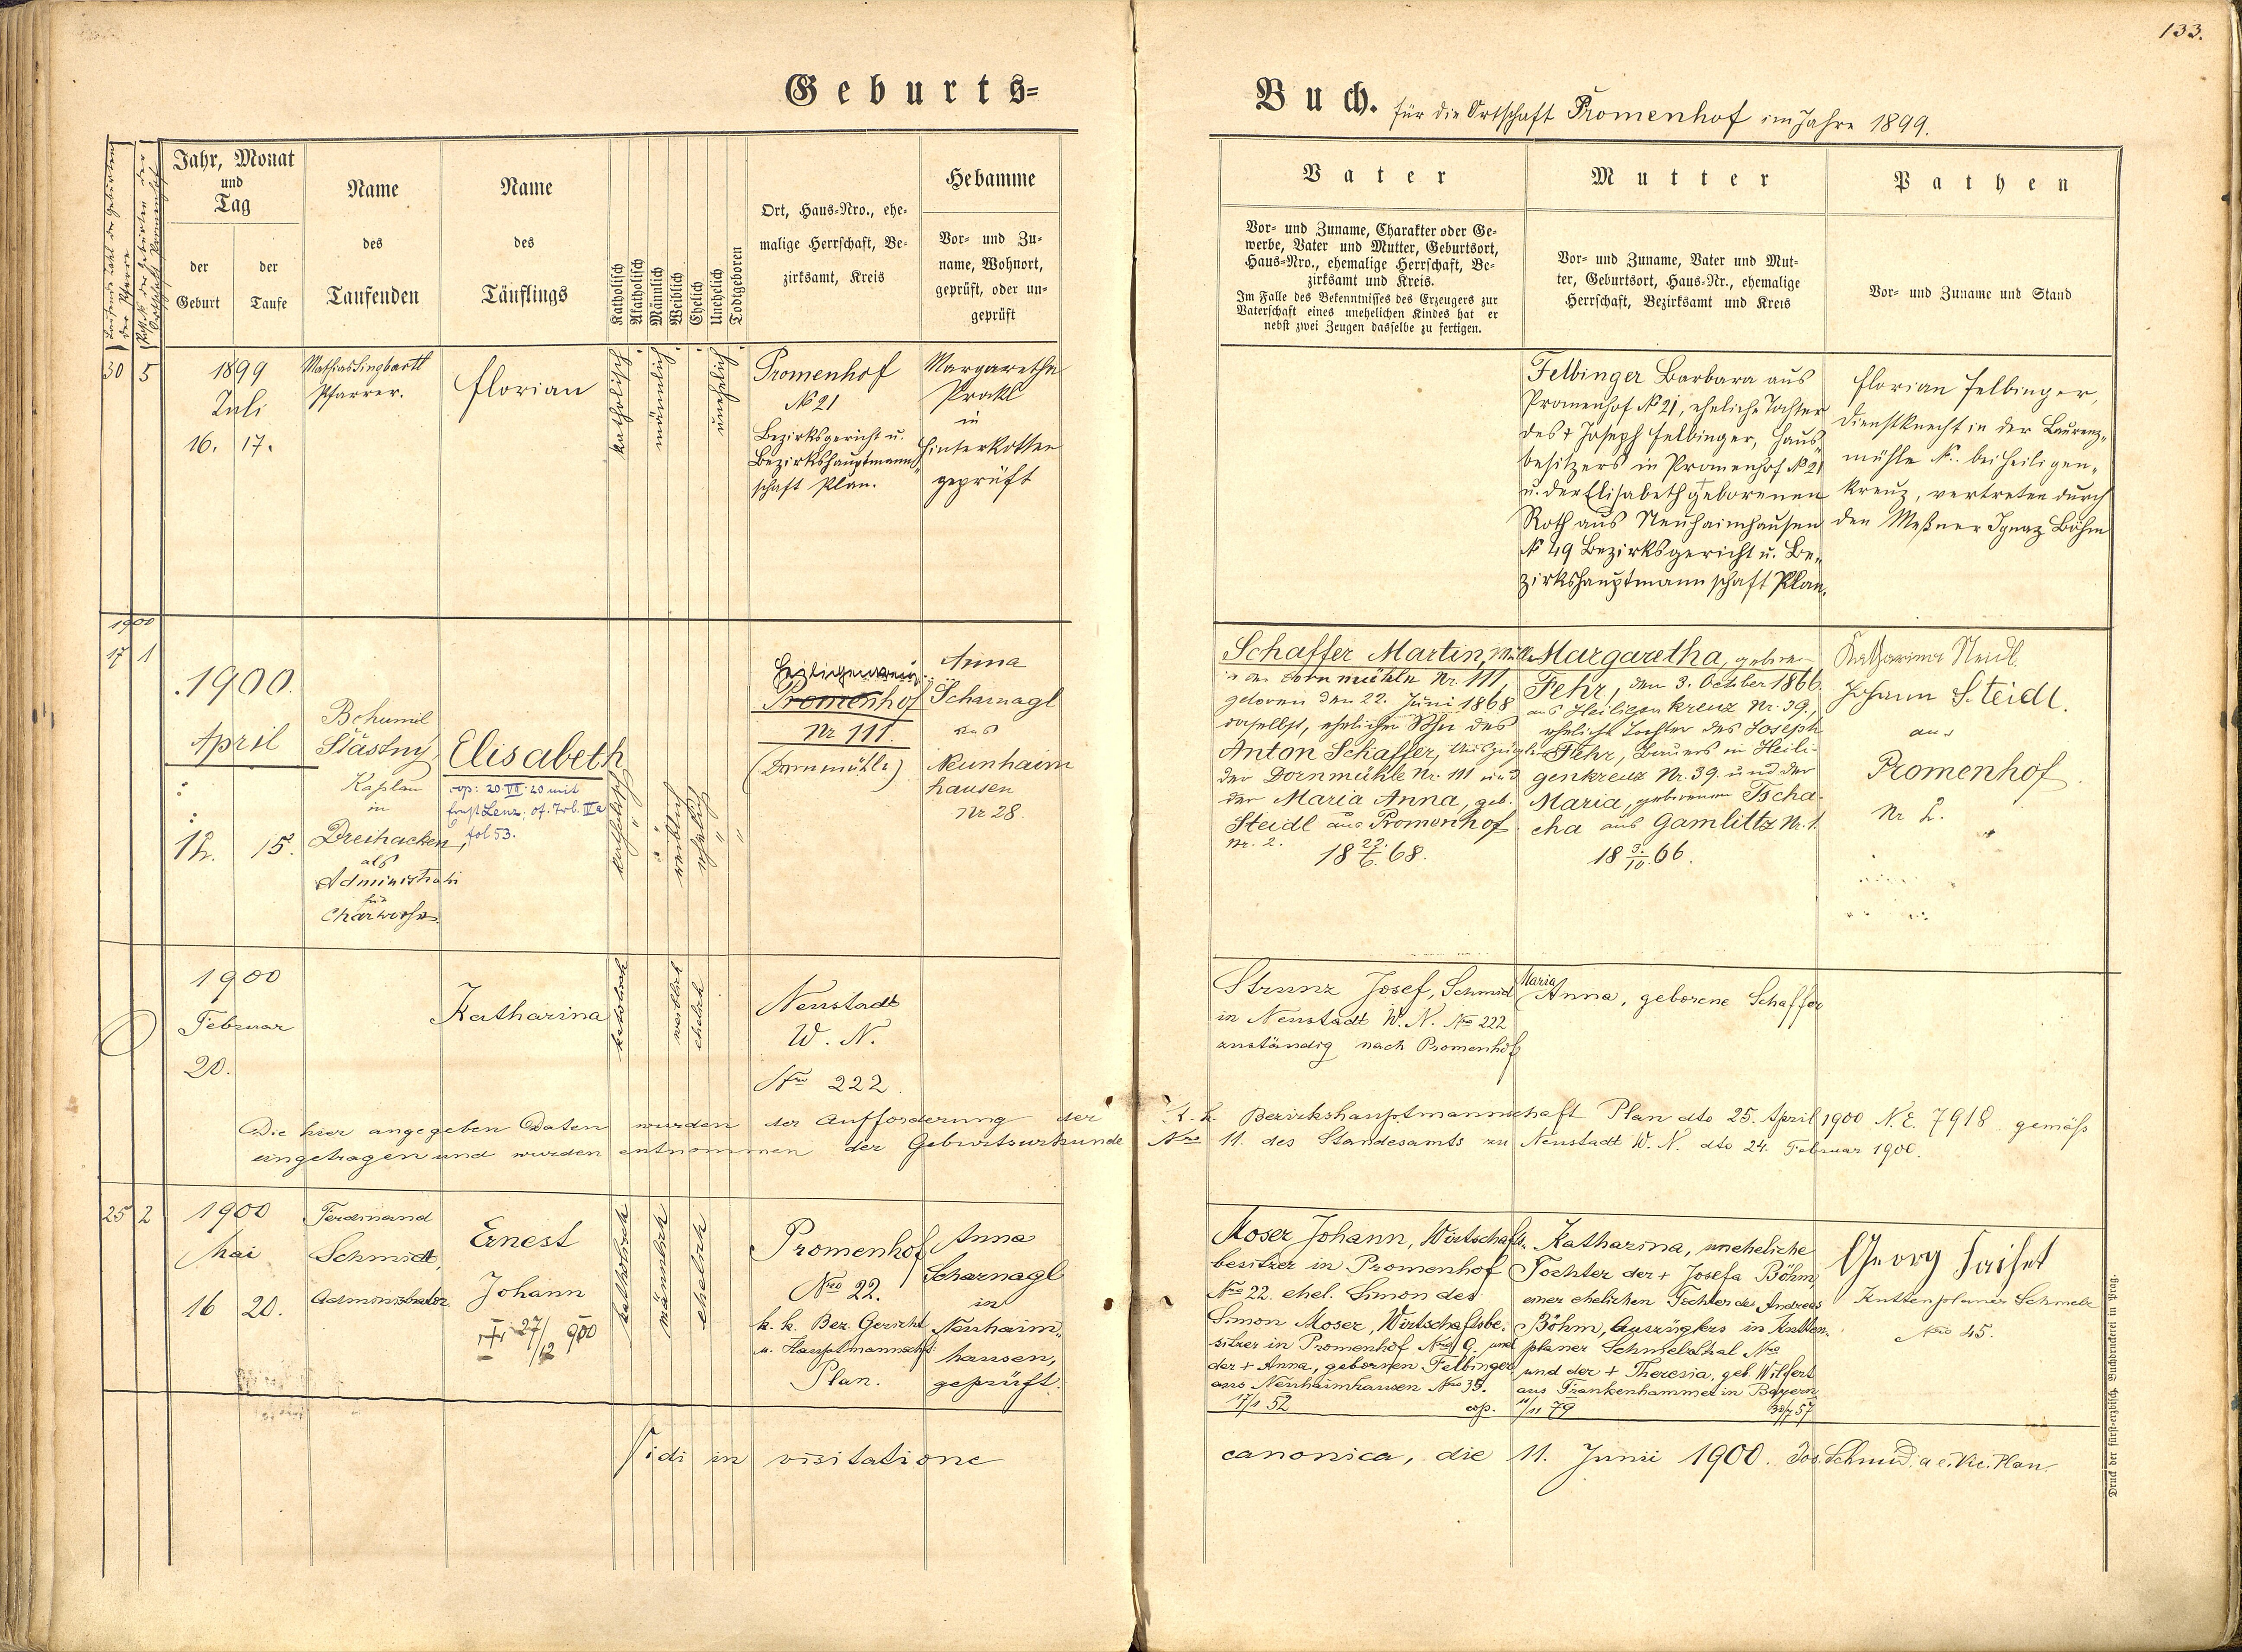 133.
Geburts-
Buch. für die Ortschaft Promenhof im Jahre 1899.
Laufende Zahl der Geburten
der Pfarre
der Geburten der
Ortschaft Promenhof
Jahr, Monat
und
Tag
der
Geburt
der
Taufe
Name
des
Taufenden
Name
des
Täuflings
Katholisch
Akatholisch
Männlich
Weiblich
Ehelich
Unehelich
Todtgeboren
Ort, Haus-Nro., ehe-
malige Herrschaft, Be-
zirksamt, Kreis
Hebamme
Vor- und Zu-
name, Wohnort,
geprüft, oder un-
geprüft
Vater
Vor- und Zuname, Charakter oder Ge-
werbe, Vater und Mutter, Geburtsort,
Haus-Nro., ehemalige Herrschaft, Be-
zirksamt und Kreis.
Im Falle des Bekenntnisses des Erzeugers zur
Vaterschaft eines unehelichen Kindes hat er
nebst zwei Zeugen dasselbe zu fertigen.
Mutter
Vor- und Zuname, Vater und Mut-
ter, Geburtsort, Haus-Nr., ehemalige
Herrschaft, Bezirksamt und Kreis
Pathen
Vor- und Zuname und Stand
30 5
1899
Juli
16. 17.
Mathias Singbartl
Pfarrer.
Florian
katholisch
männlich
unehelich
Promenhof
№ 21
Bezirksgericht u.
Bezirkshauptmann-
schaft Plan.
Margaretha
Prokl
in
Hinterkotten
geprüft
Felbinger Barbara aus
Promenhof № 21, eheliche Tochter
des † Joseph Felbinger, Haus-
besitzers in Promenhof № 21
u. der Elisabeth geborenen
Roth aus Neuhaimhausen
№ 49 Bezirksgericht u. Be-
zirkshauptmannschaft Plan.
Florian Felbinger,
Dienstknecht in der Laurenz-
mühle №.. bei Heiligen-
kreuz, vertreten durch
den Meßner Ignaz Böhm
1900
17 1
1900.
April
12. 15.
Bohumil
Šťastný
Kaplan
in
Dreihacken,
als
Administrator
für
Charwoche.
Elisabeth
cop: 20.VII.20 mit
Ernst Lenz, of. Trb. IIa
fol 53.
katholisch
weiblich
ehelich
Heiligenkreuz
Promenhof
Nr 111.
(Dornmühle)
Anna
Scharnagl
aus
Neuhaim
hausen
Nr 28.
Schaffer Martin, Müller
in der Dornmühle Nr. 111,
geboren den 22. Juni 1868
daselbst, ehelicher Sohn des
Anton Schaffer, Auszügler
der Dornmühle Nr. 111 und
der Maria Anna, geb.
Steidl aus Promenhof
Nr. 2.
18 22./6. 68.
Margaretha, geboren
Fehr, den 3. October 1866
aus Heiligenkreuz Nr. 39.,
eheliche Tochter des Joseph
Fehr, Bauers in Heili-
genkreuz Nr. 39. und der
Maria, geborenen Tscha-
cha aus Gamlittz Nr. 1.
18 3./10. 66.
Katharina
Johann Steidl.
aus
Promenhof
Nr 2.
1900
Februar
20.
Katharina
katolisch
weiblich
ehelich
Neustadt
W. N.
Nro 222.
Strunz Josef, Schmid
in Neustadt W. N. Nro 222
zuständig nach Promenhof
Maria
Anna, geborene Schaffer
Die hier angegeben Daten wurden der Aufforderung der k. k. Bezirkshauptmannschaft Plan dto 25. April 1900 N.E. 7918 gemäss
eingetragen und wurden entnommen der Geburtsurkunde Nro 11. des Standesamts zu Neustadt W. N. dto 24. Februar 1900.
25 2
1900
Mai
16 20.
Ferdinand
Schmidt,
Administrator.
Ernest
Johann
† 27/12 900
katholisch
männlich
ehelich
Promenhof
Nro 22.
k. k. Bez. Gericht
u. Hauptmannschft
Plan.
Anna
Scharnagl
in
Neuhaim-
hausen,
geprüft.
Moser Johann, Wirtschafts-
besitzer in Promenhof
Nro 22. ehel. Simon des
Simon Moser, Wirtschaftsbe-
sitzer in Promenhof Nro 19. und
der + Anna, gebornen Felbinger
aus Neuhaimhausen Nro 35.
17/1 52 cop.
Katharina, uneheliche
Tochter der + Josefa Böhm,
einer ehelichen Tochter des Andreas
Böhm, Auszüglers in Kutten-
planer Schmelzthal Nro
und der + Theresia, geb. Wilfert
aus Frankenhammer in Bayern
11/11 79 30/7 57
Georg
Kuttenplaner Schmelz
Nro 45.
Vidi in visitatione canonica, die 11. Junii 1900. Jos. Schmid. a. e. Vic. Plan.
Druck der fürst-erzbisch. Buchdruckerei in Prag.